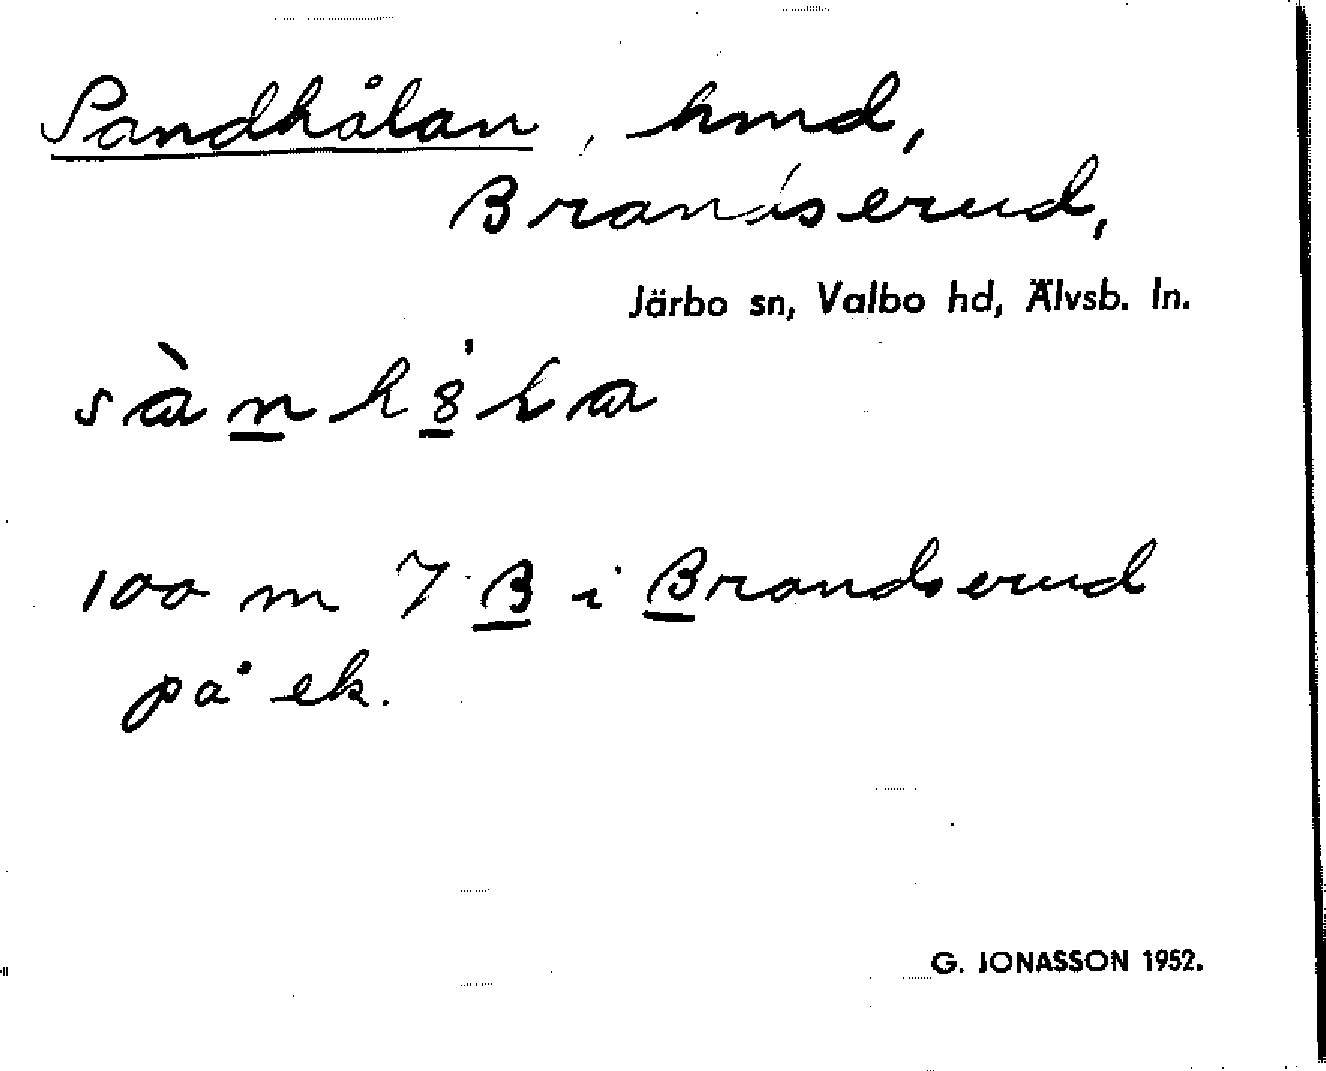 Sandhålan, hmd,
Brandserud,
Järbo sn, Valbo hd, Älvsb. ln.
100 m 7 B i Brandserud
på ek.
G. JONASSON 1952.